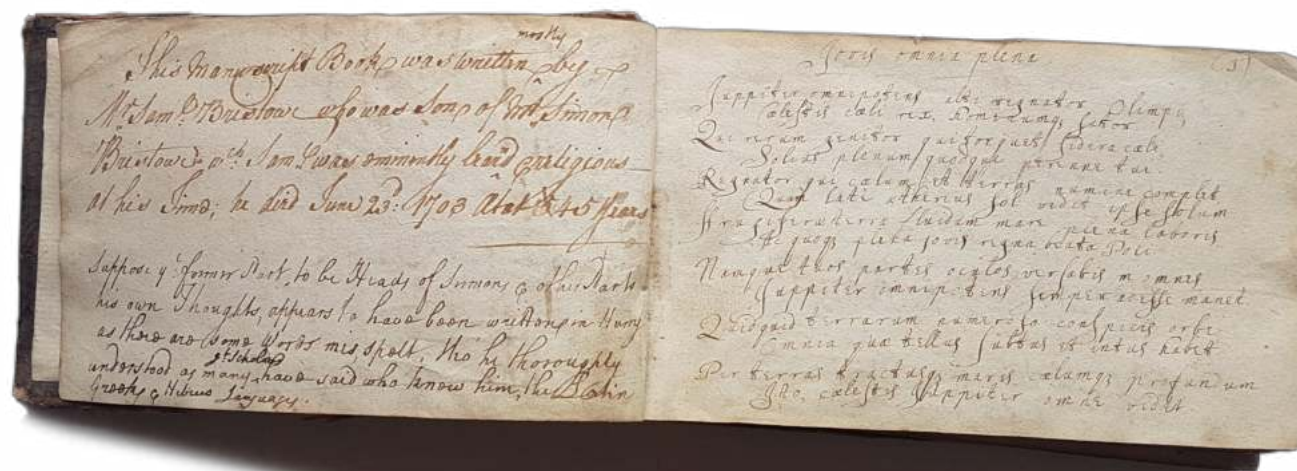 mostly
This Manuscript Book was written by
Mr. Saml. Bristow who was Son of Mr. Simon
Bristow wch. Saml. was eminently learnd & religious
at his Time; he died June 23d: 1703 Ætat: 45 Years
Suppose ye. former Part, to be Heads of Sermons & other Parts
his own Thoughts, appears to have been written in Hurry
as there are some words mis,spelt, tho' he thoroughly
gt. Scholars
understood as many have said who knew him, the Latin
Greek & Hebrew Languages.
Jovis omnia plena
(1)
Juppiter omnipotens alti regnator Olimpi,
Cælestis cæli rex, hominumq; sator
Qui rerum genitor qui torques sidera cæli
Solius plenum quodque
Regnator qui cælum et terras numine complet
Quam late ætherius sol videt ipse solum
terra fluidum mare plena laboris
quoq; plena Jovis regna beata Poli.
Namque tuos partes oculos versabis in omnes
Juppiter omnipotens semper adesse manet.
Quidquid terrarum numeroso conspicis orbe
Omnia quæ tellus subtus et intus habet
Per terras tractusq; maris cælumq; profundum
cælestis Juppiter omne videt.